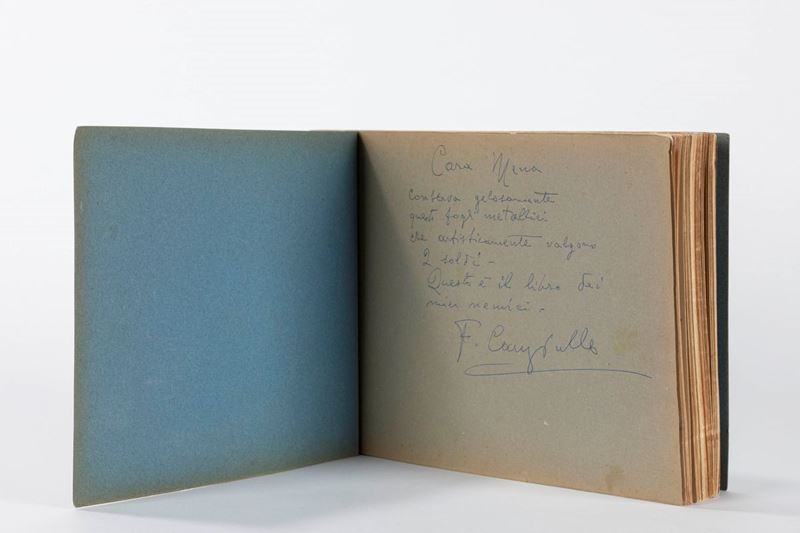 Cara Mena
Conserva gelosamente
questi fogli metallici
che artisticamente valgono
2 soldi -
Questo è il libro dei
miei nemici -
F. Cangiullo